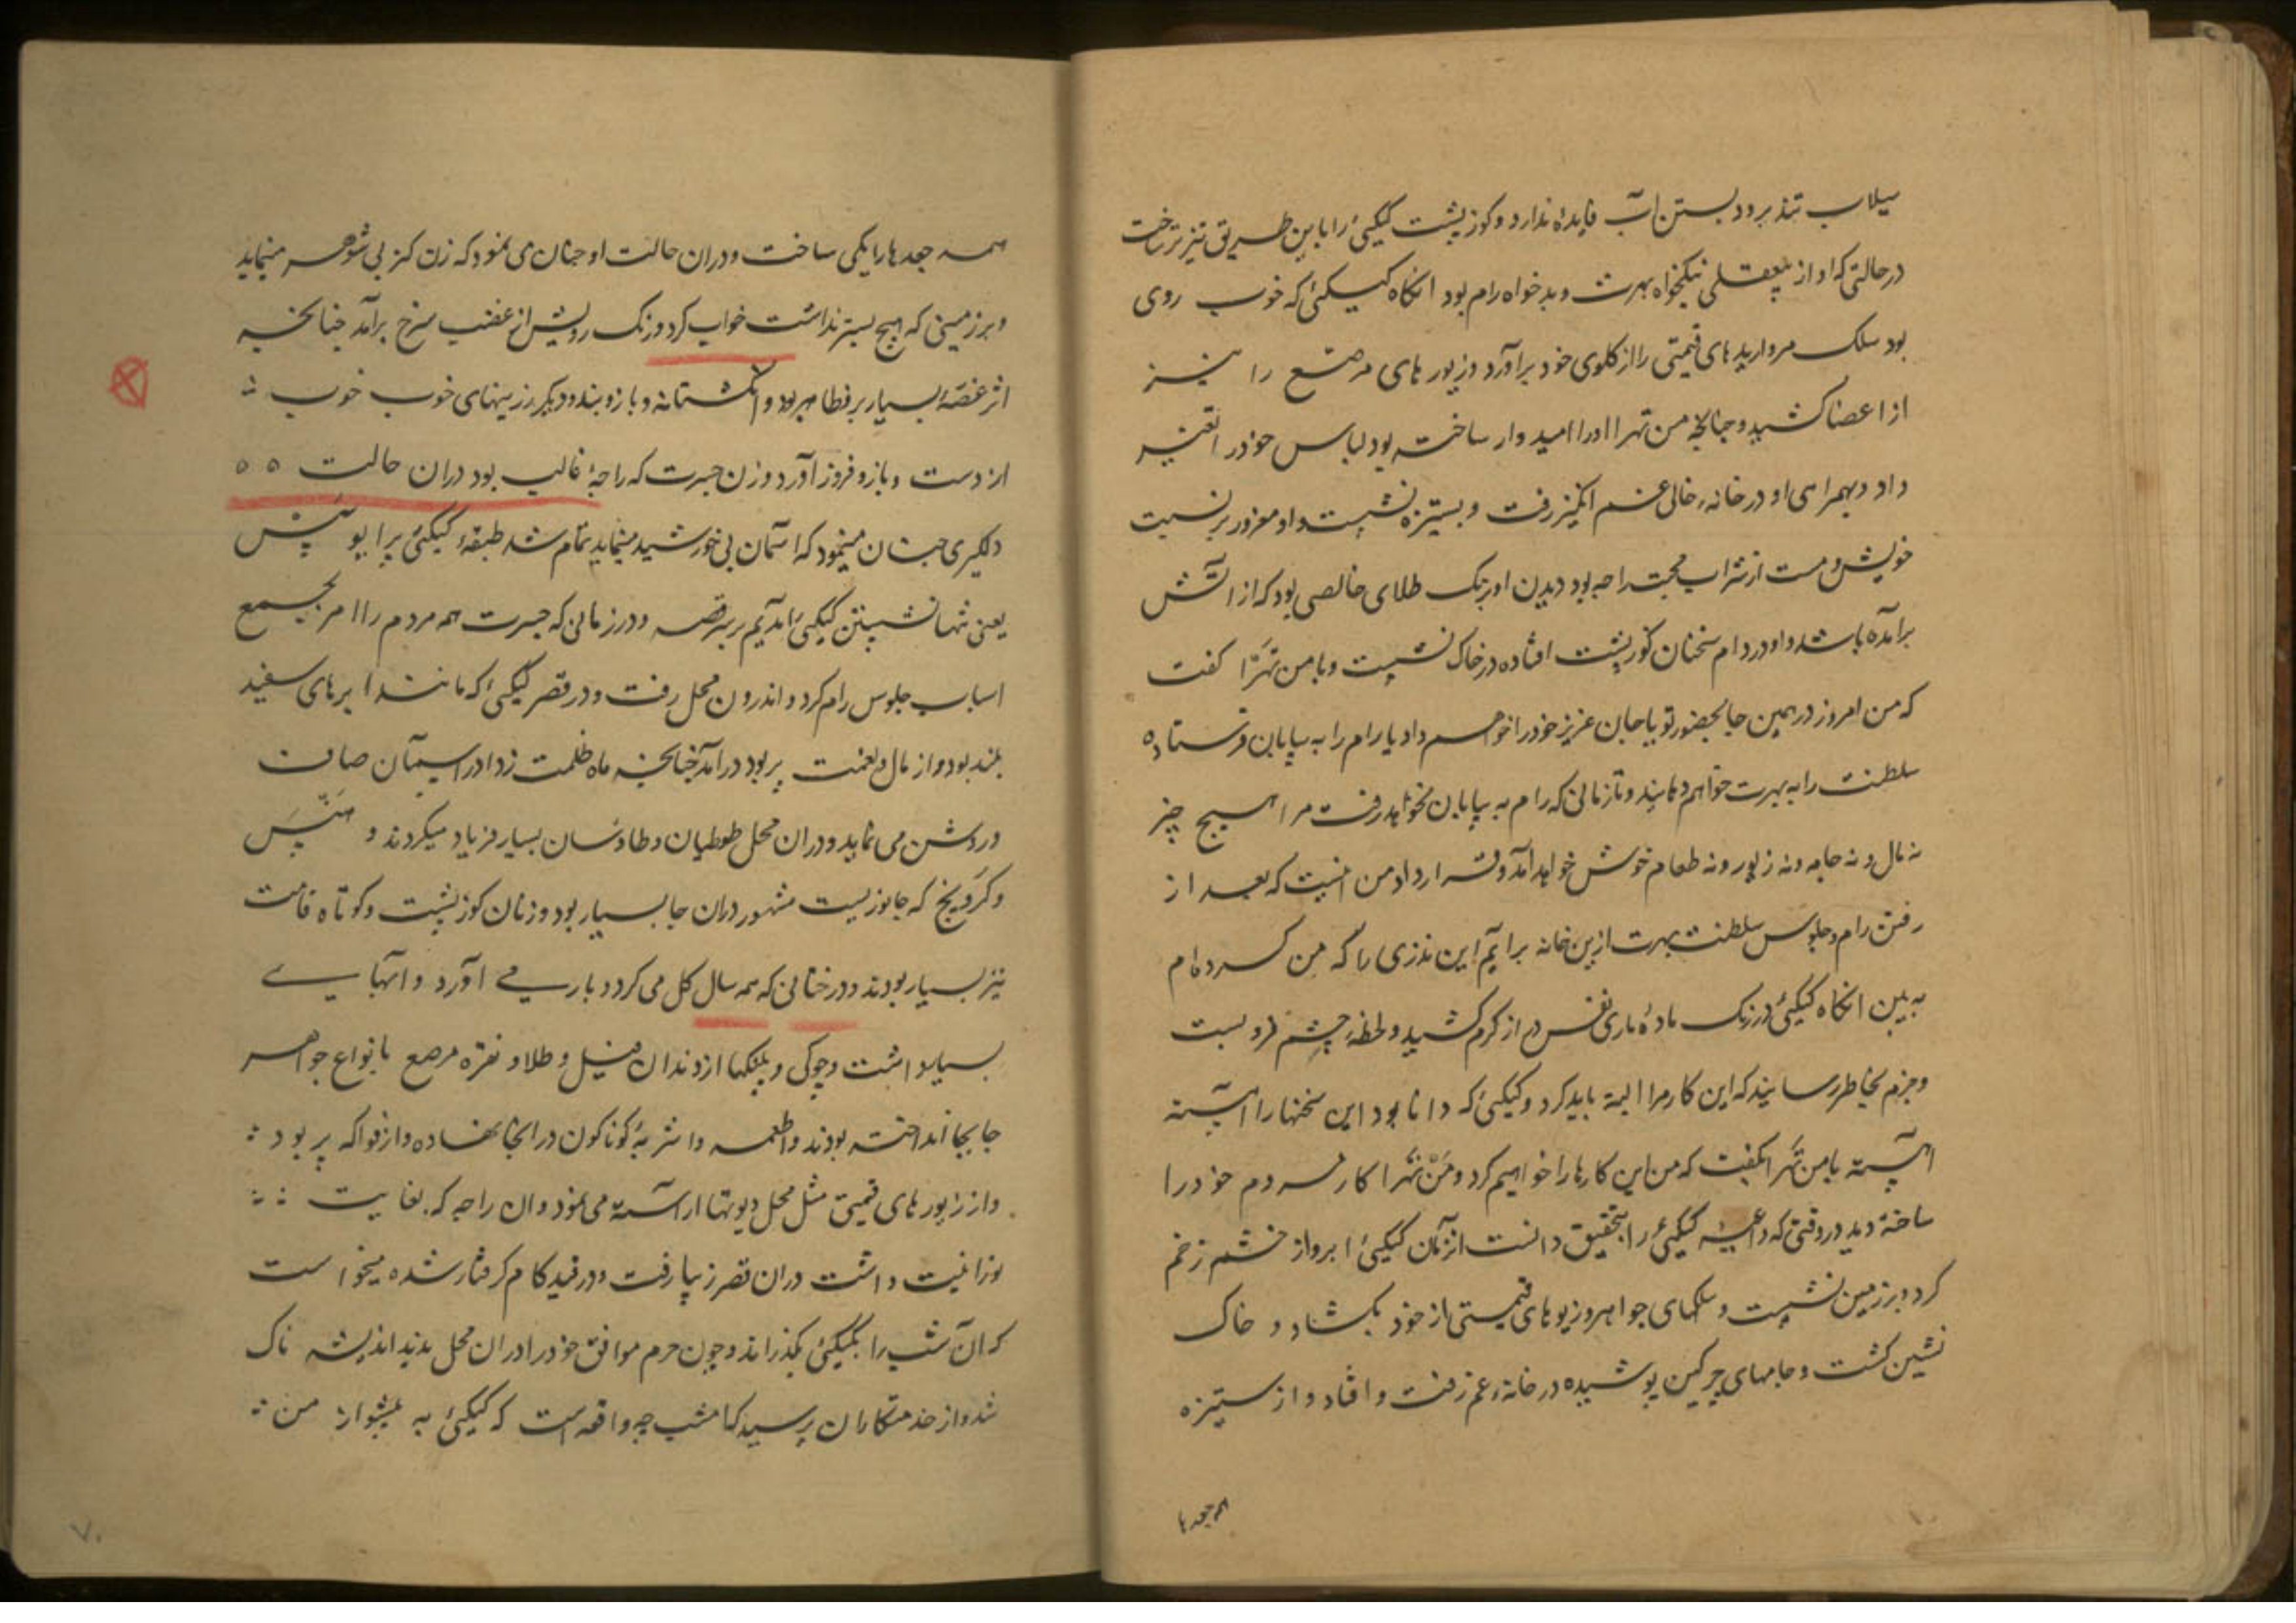 سیلاب تند برود بستن آب فایده ندارد و کوزپشت کیکئی را باین طریق تیزتر ساخت
در حالتی که او از بیعقلی نیکخواه بهرت و بدخواه رام بود انگاه کیکئی که خوب روی
بود سلک مرواریدهای قیمتی را از کلوی خود برآورد و زیورهای مرصع را نیز
از اعضا کشید و چنانچه من تهرا او را امیدوار ساخته بود لباس خود را تغییر
داد و بهمراهی او در خانهٔ خالی غم انگیز رفت و بستیزه نشست و او مغرور بر نسبت
خویش و مست از شراب محبت راجه بود دیدن او برنک طلای خالصی بود که از آتش
برآمده باشد و او در دام سخنان کوزپشت افتاده در خاک نشست و با من تهرا کفت
که من امروز در همین جا بحضور تو یا جان عزیز خود را خواهم داد یا رام را به بیابان فرستاده
سلطنت را به بهرت خواهم دهانید و تا زمانی که رام به بیابان نخواهد رفت مرا هیچ چیز
نه مال و نه جامه و نه زیور و نه طعام خوش خواهد آمد و قرارداد من اینست که بعد از
رفتن رام و جلوس سلطنت بهرت ازین خانه برایم این نذری را که من کرده ام
به بین انگاه کیکئی در رنک مادهٔ ماری نفس دراز کرم کشید و لحظهٔ چشم فرو بست
و جزم بخاطر رسانید که این کار مرا البته باید کرد و کیکئی که دانا بود این سخنها را آهسته
آهسته با من تهرا بگفت که من این کارها را خواهم کرد و من تهرا کار مردم خود را
ساخته دید در وقتی که داعیهٔ کیکئی را بتحقیق دانست از آن کیکئی ابرو از خشم زخم
کرد و بر زمین نشست و سلکهای جواهر و زیورهای قیمتی از خود بکشاد و خاک
نشین کشت و جامهای چرکین پوشیده در خانهٔ غم رفت و افتاد و از ستیزه
همه جعدها
همه جعدها را یکی ساخت و دران حالت او چنان می نمود که زن کنر بی شوهر مینماید
و بر زمینی که هیچ بستر نداشت خواب کرد و رنک رویش از غضب سرخ برآمد چنانچه
اثر غصهٔ بسیار بر فطا هر بود و انکشتانه و بازوبند و دیکر زرینهای خوب خوب
از دست و بازو فرود آورد و زن جسرت که راجهٔ غالب بود دران حالت ه ه
دلکیری چنان مینمود که آسمان بی خورشید مینماید تمام شد طبقهٔ کیکئی پرایو پیش
یعنی تنها نشستن کیکئی آمدیم بر سر قصه و در زمانی که جسرت همه مردم را امر بجمع
اسباب جلوس رام کرد و اندرون محل رفت و در قصر کیکئی که مانند ابرهای سفید
بلند بود و از مال و نعمت پر بود درآمد چنانچه ماه ظلمت زدا در آسمان صاف
و روشن می نماید و دران محل طوطیان و طاوسان بسیار فریاد میکردند و هنس
و کرونچ که جانوریست مشهور دران جا بسیار بود و زنان کوزپشت و کوتاه قامت
نیز بسیار بودند و درختانی که همه سال کل می کرد و بار می آورد و آنها بی
بسیار داشت و چوکی و پلنکها از دندان فیل و طلا و نقره مرصع بانواع جواهر
جابجا انداخته بودند و اطعمه و اشربهٔ کوناکون در انجا نهاده و از فواکه پر بود
و از زیورهای قیمتی مثل محل دیوتها آراسته می نمود و آن راجه که بغایت
نورانیت داشت دران قصر زیبا رفت و در قید کام کرفتار شده میخواست
که آن شب را بکیکئی بکذراند و چون حرم موافق خود را دران محل ندید اندیشه ناک
شد و از خدمتکاران پرسید که امشب چه واقعه است که کیکئی به پیشواز من
۷۰